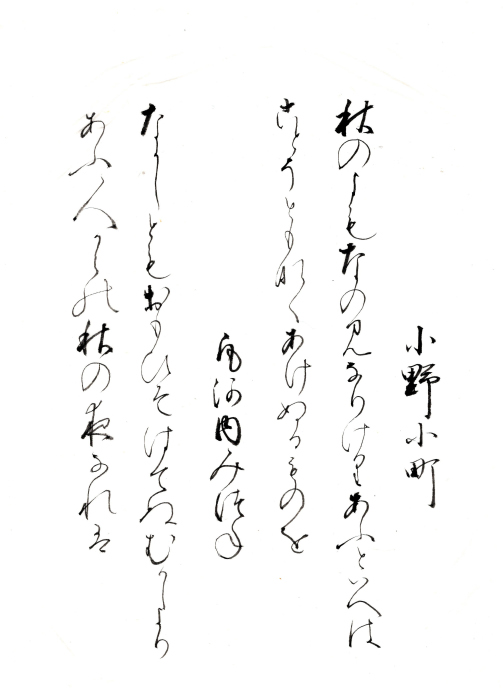 小野小町
秋のよもなの見なりけりあふといへは
ことそともなくあけぬるものを
凡河内みつね
なかしともおもひそはてぬむかしより
あふ人からの秋の夜なれは